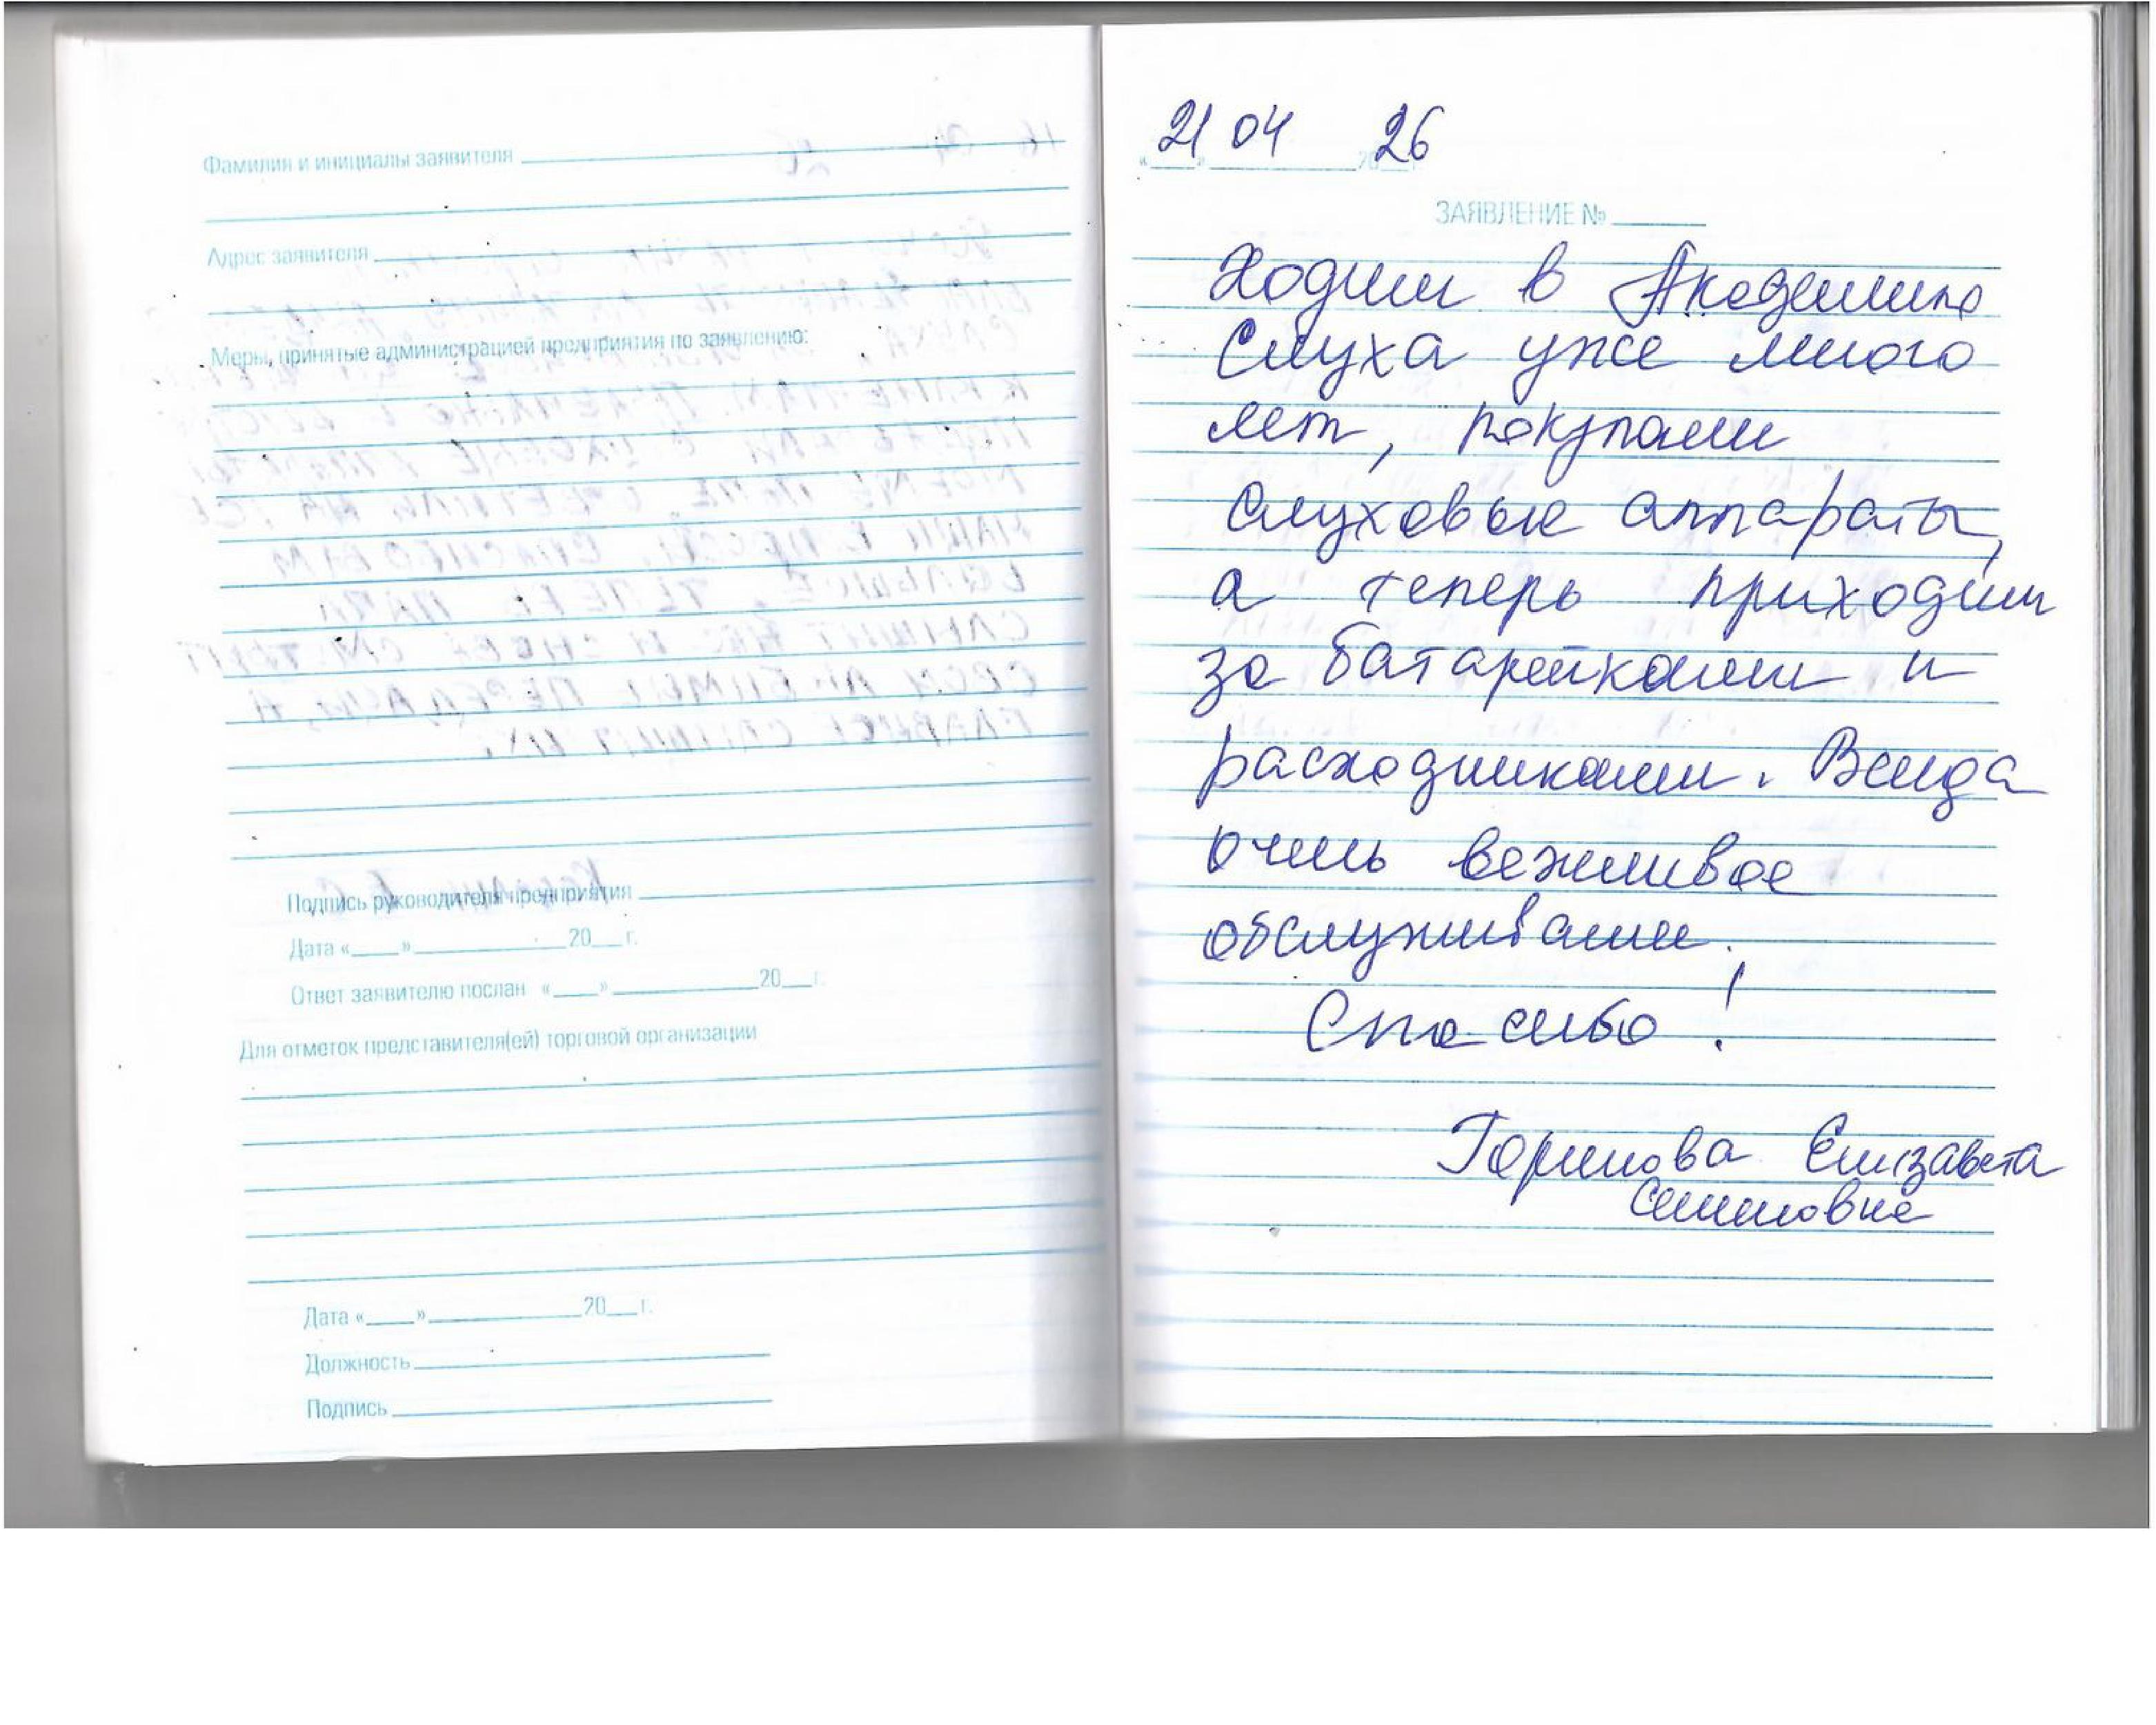 Фамилия и инициалы заявителя
Адрес заявителя
Меры, принятые администрацией предприятия по заявлению:
Подпись руководителя предприятия
Дата «___» ________ 20__ г.
Ответ заявителю послан «___» ________ 20__ г.
Для отметок представителя(ей) торговой организации
Дата «___» ________ 20__ г.
Должность
Подпись
21 04 26
ЗАЯВЛЕНИЕ №
Ходим в Академию
Слуха уже много
лет, покупали
слуховые аппараты,
а теперь приходим
за батарейками и
расходниками. Всегда
очень вежливое
обслуживание.
Спасибо!
Горинова Елизавета
Семеновна